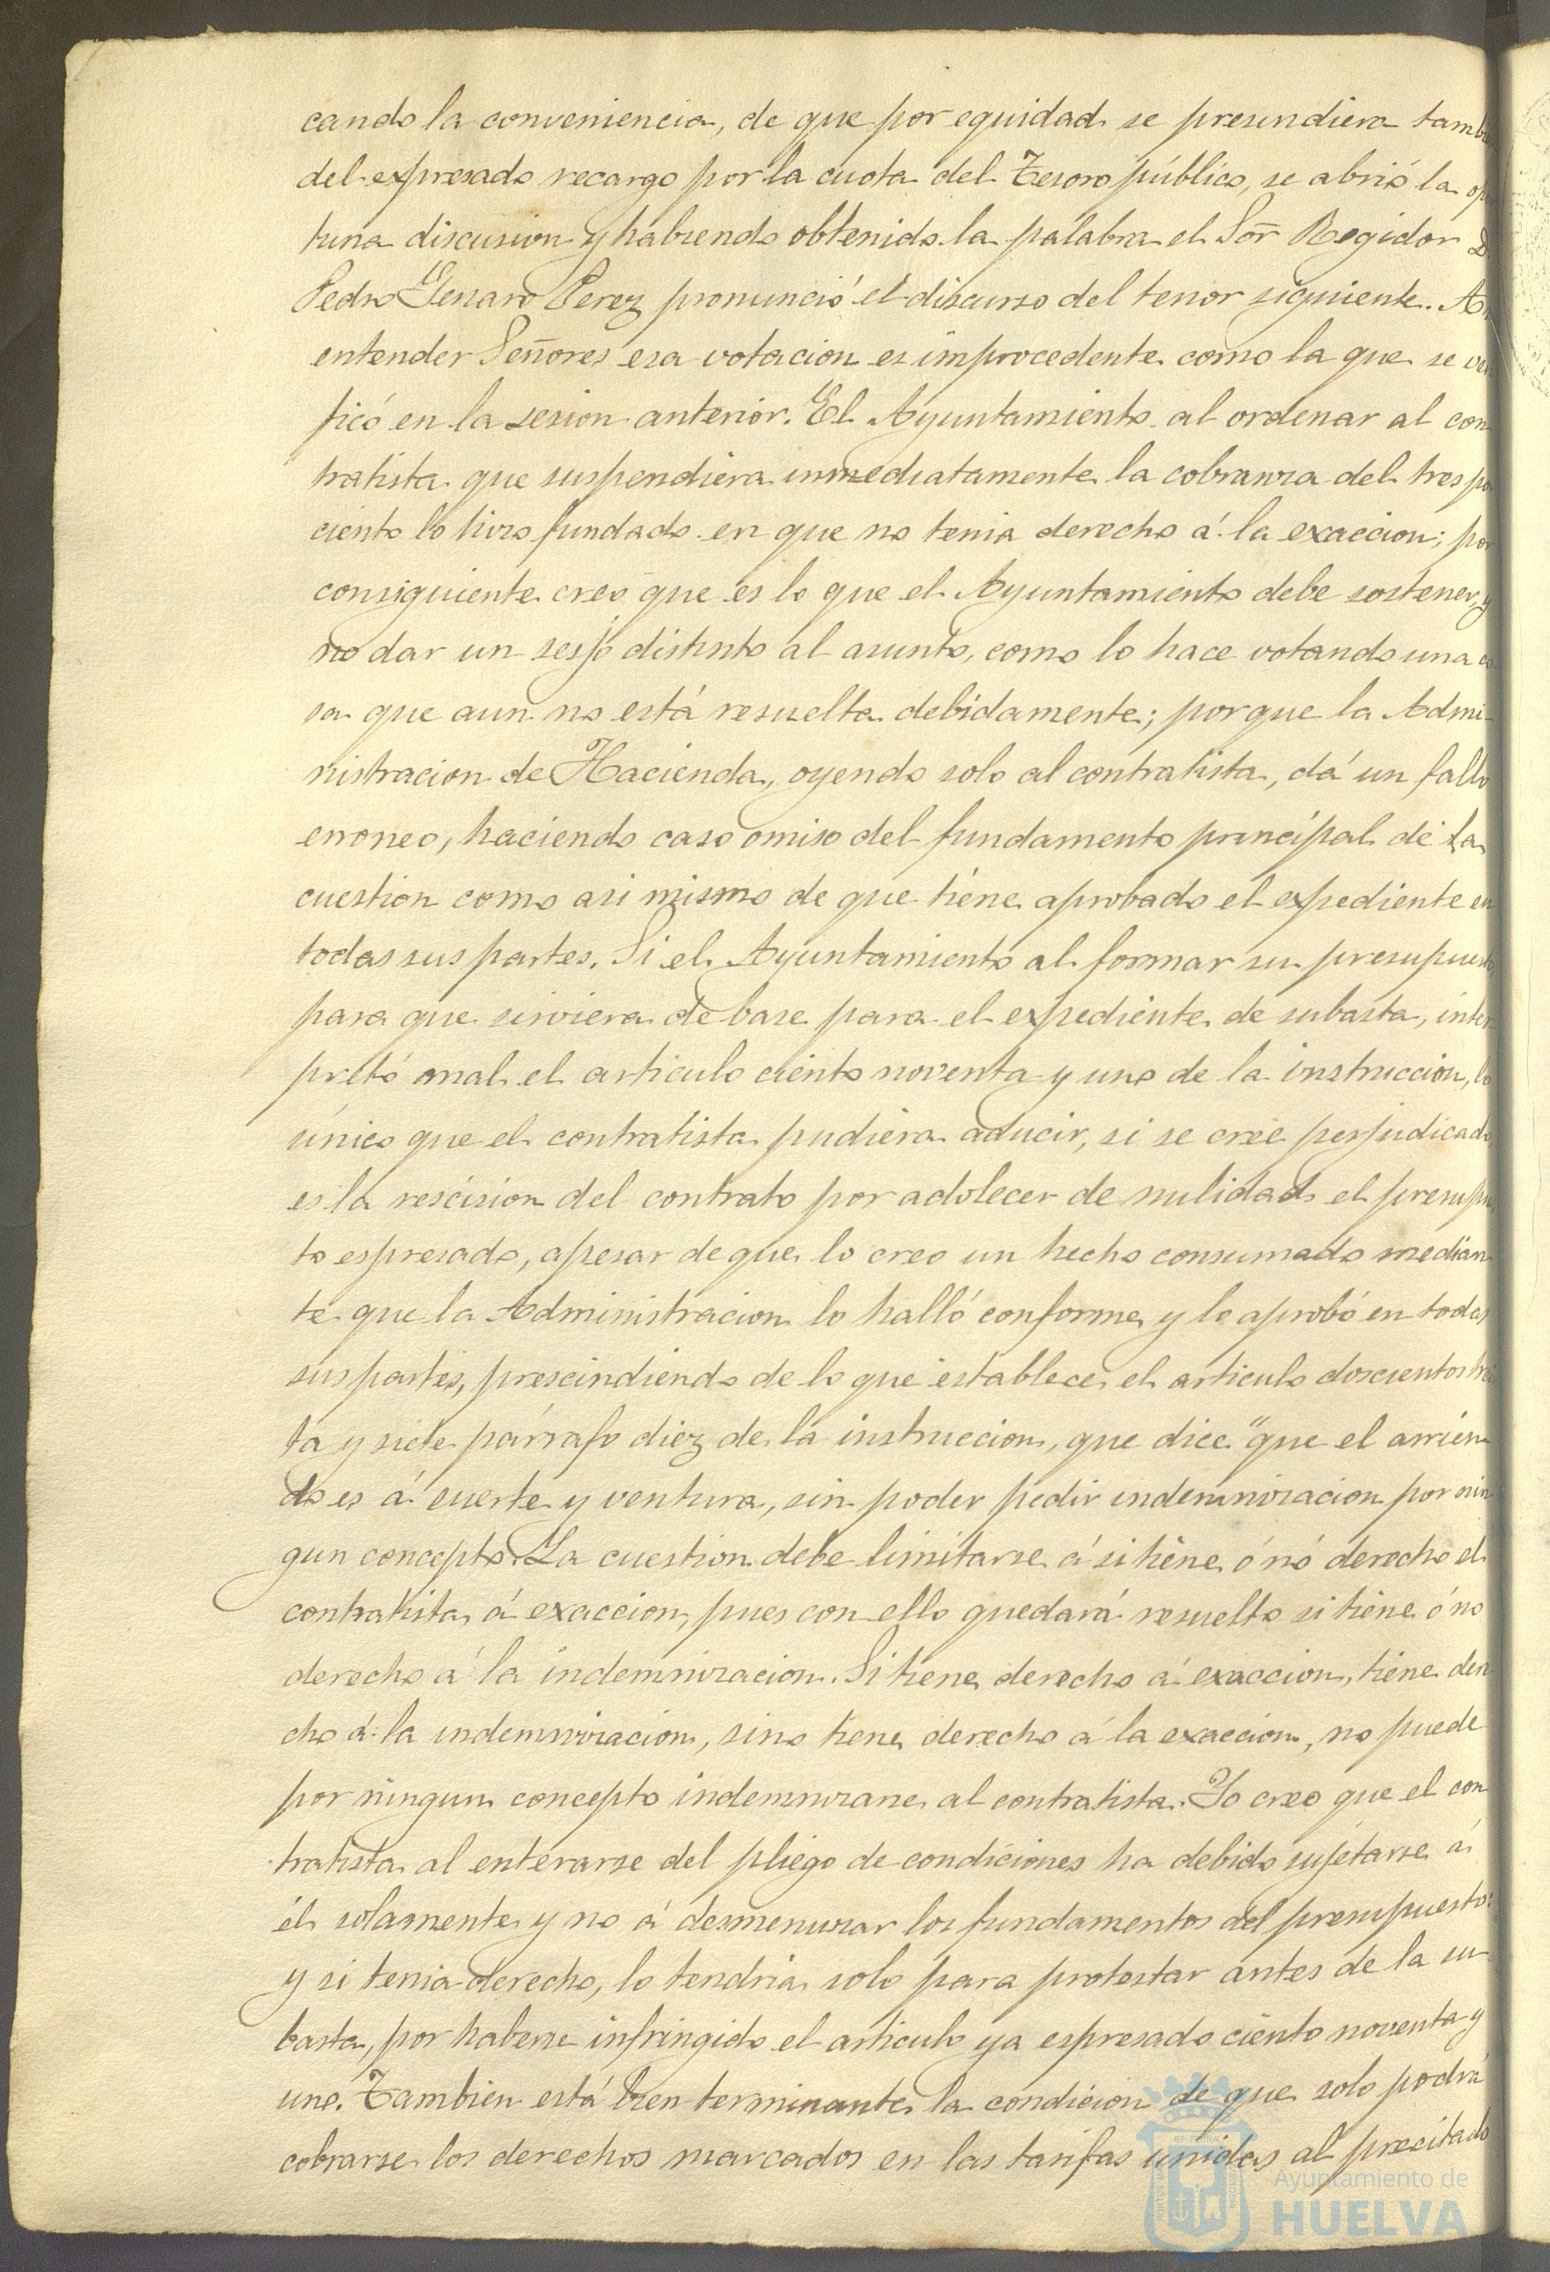 cando la conveniencia, de que por equidad se presindiera tamb
del expresado recargo por la cuota del Tesoro público, se abrió la op
tuna discusion y habiendo obtenido la palabra el Sor Regidor D.
Pedro Genaro Perez pronunció el discurso del tenor siguiente. A
entender Señores esa votacion es improcedente como la que se veri
ficó en la sesion anterior. El Ayuntamiento al ordenar al con
tratista que suspendiera inmediatamente la cobranza del tres por
ciento lo hizo fundado en que no tenia derecho á la exaccion; por
consiguiente creo que es lo que el Ayuntamiento debe sostener, y
no dar un sesjo distinto al asunto, como lo hace votando una co
sa que aun no está resuelta debidamente; porque la Admi-
nistracion de Hacienda, oyendo solo al contratista, dá un fallo
erroneo, haciendo caso omiso del fundamento principal de la
cuestion como asi mismo de que tiene aprobado el expediente en
todas sus partes. Si el Ayuntamiento al formar su presupuesto
para que sirviera de base para el expediente de subasta, inter
pretó mal el articulo ciento noventa y uno de la instruccion, lo
único que el contratista pudiera aducir, si se cree perjudicado
es la rescision del contrato por adolecer de nulidad el presupu
to espresado, apesar de que lo creo un hecho consumado median
te que la Administracion lo halló conforme y lo aprobó en todas
sus partes, prescindiendo de lo que establece el articulo doscientos trein
ta y siete párrafo diez de la instruccion, que dice "que el arrien
do es á suerte y ventura, sin poder pedir indemnizacion por nin
gun concepto. La cuestion debe limitarse á si tiene ó nó derecho el
contratista á exaccion, pues con ello quedará resuelto si tiene ó no
derecho á la indemnizacion. Si tiene derecho á exaccion, tiene dere
cho á la indemnizacion, sino tiene derecho á la exaccion, no puede
por ningun concepto indemnizarse al contratista. Yo creo que el con
tratista al enterarse del pliego de condiciones ha debido sujetarse á
él solamente y no á desmenuzar los fundamentos del presupuesto:
y si tenia derecho, lo tendria solo para protestar antes de la su-
basta, por haberse infringido el articulo ya espresado ciento noventa y
uno. Tambien está bien terminante la condicion de que solo podrá
cobrarse los derechos marcados en las tarifas unidas al precitado
Ayuntamiento de
HUELVA